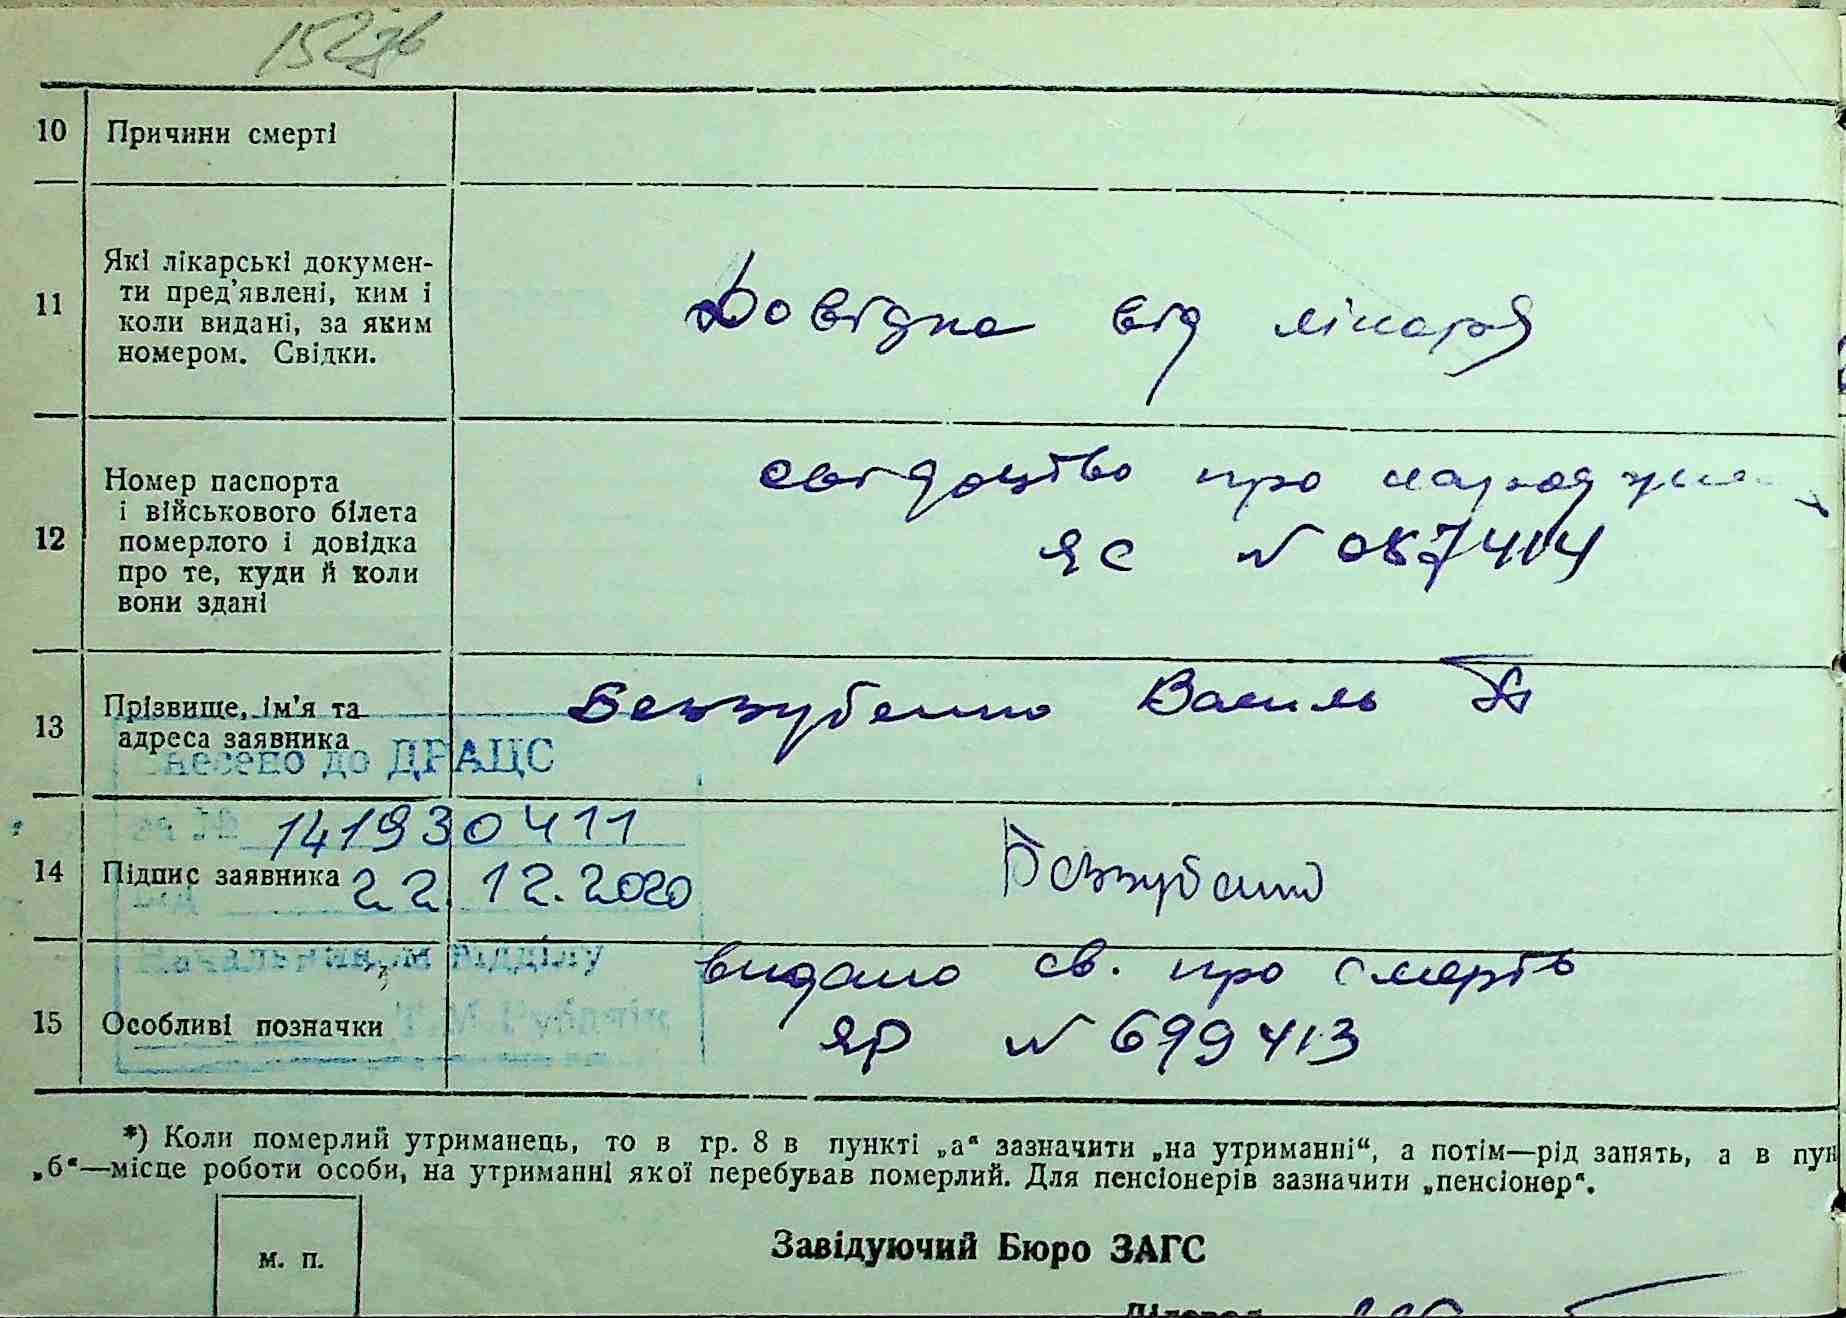 152зв
10 Причини смерті
11 Які лікарські докумен-
ти пред'явлені, ким і
коли видані, за яким
номером. Свідки.
Довідка від лікаря
12 Номер паспорта
і військового білета
померлого і довідка
про те, куди й коли
вони здані
свідоцтво про народження
ЯС № 087414
13 Прізвище, ім'я та
адреса заявника
Беззубенко Василь
внесено до ДРАЦС
за № 141930411
14 Підпис заявника
Беззубенко
від 22.12.2020
Начальником відділу
15 Особливі позначки
видано св. про смерть
ЯР № 699413
*) Коли померлий утриманець, то в гр. 8 в пункті „а“ зазначити „на утриманні“, а потім—рід занять, а в пун
„б“—місце роботи особи, на утриманні якої перебував померлий. Для пенсіонерів зазначити „пенсіонер“.
м. п.
Завідуючий Бюро ЗАГС